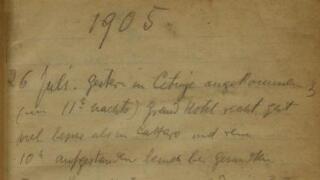 1905.
26 Juli. Gestern in Cetinje angekommen
(um 11h nachts) Grand Hotel recht gut
viel besser als in Cattaro und rein
10h aufgestanden besuch bei Gesandten